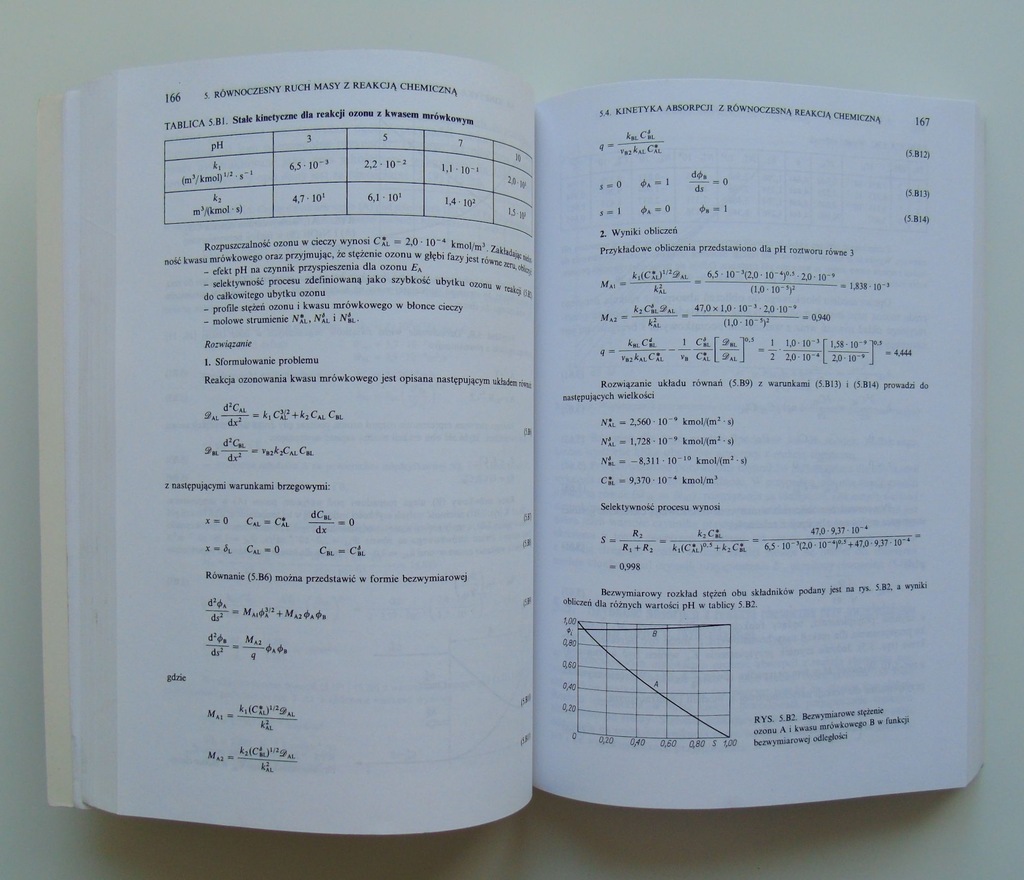 166 5. RÓWNOCZESNY RUCH MASY Z REAKCJĄ CHEMICZNĄ
TABLICA 5.B1. Stałe kinetyczne dla reakcji ozonu z kwasem mrówkowym
pH 3 5 7 10
k₁ (m³/kmol)¹ᐟ² · s⁻¹ 6,5 · 10⁻³ 2,2 · 10⁻² 1,1 · 10⁻¹ 2,0 ·
k₂ m³/(kmol · s) 4,7 · 10¹ 6,1 · 10¹ 1,4 · 10² 1,5 ·
Rozpuszczalność ozonu w cieczy wynosi C*AL = 2,0 · 10⁻⁴ kmol/m³. Zakładając
ność kwasu mrówkowego oraz przyjmując, że stężenie ozonu w głębi fazy jest równe zeru,
– efekt pH na czynnik przyspieszenia dla ozonu EA
– selektywność procesu zdefiniowaną jako szybkość ubytku ozonu w reakcji
do całkowitego ubytku ozonu
– profile stężeń ozonu i kwasu mrówkowego w błonce cieczy
– molowe strumienie N*AL, NδAL i NδBL.
Rozwiązanie
1. Sformułowanie problemu
Reakcja ozonowania kwasu mrówkowego jest opisana następującym układem
𝒟AL d²CAL/dx² = k₁C³ᐟ²AL + k₂CAL CBL
𝒟BL d²CBL/dx² = νB2k₂CAL CBL
z następującymi warunkami brzegowymi:
x = 0 CAL = C*AL dCBL/dx = 0
x = δL CAL = 0 CBL = CδBL
Równanie (5.B6) można przedstawić w formie bezwymiarowej
d²ϕA/ds² = MA1ϕA³ᐟ² + MA2ϕAϕB
d²ϕB/ds² = MA2/q ϕAϕB
gdzie
MA1 = k₁(C*AL)¹ᐟ²𝒟AL / k²AL
MA2 = k₂(CδBL)¹ᐟ²𝒟AL / k²AL
5.4. KINETYKA ABSORPCJI Z RÓWNOCZESNĄ REAKCJĄ CHEMICZNĄ 167
q = kBL CδBL / νB2kAL C*AL (5.B12)
s = 0 ϕA = 1 dϕB/ds = 0 (5.B13)
s = 1 ϕA = 0 ϕB = 1 (5.B14)
2. Wyniki obliczeń
Przykładowe obliczenia przedstawiono dla pH roztworu równe 3
MA1 = k₁(C*AL)¹ᐟ²𝒟AL / k²AL = 6,5 · 10⁻³(2,0 · 10⁻⁴)⁰·⁵ · 2,0 · 10⁻⁹ / (1,0 · 10⁻⁵)² = 1,838 · 10⁻³
MA2 = k₂CδBL𝒟AL / k²AL = 47,0 × 1,0 · 10⁻³ · 2,0 · 10⁻⁹ / (1,0 · 10⁻⁵)² = 0,940
q = kBL CδBL / νB2kAL C*AL = 1/νB CδBL/C*AL [𝒟BL/𝒟AL]⁰·⁵ = 1/2 1,0 · 10⁻³/2,0 · 10⁻⁴ [1,58 · 10⁻⁹/2,0 · 10⁻⁹]⁰·⁵ = 4,444
Rozwiązanie układu równań (5.B9) z warunkami (5.B13) i (5.B14) prowadzi do
następujących wielkości
N*AL = 2,560 · 10⁻⁹ kmol/(m² · s)
NδAL = 1,728 · 10⁻⁹ kmol/(m² · s)
NδBL = −8,311 · 10⁻¹⁰ kmol/(m² · s)
C*BL = 9,370 · 10⁻⁴ kmol/m³
Selektywność procesu wynosi
S = R₂ / R₁ + R₂ = k₂C*BL / k₁(C*AL)⁰·⁵ + k₂C*BL = 47,0 · 9,37 · 10⁻⁴ / 6,5 · 10⁻³(2,0 · 10⁻⁴)⁰·⁵ + 47,0 · 9,37 · 10⁻⁴ =
= 0,998
Bezwymiarowy rozkład stężeń obu składników podany jest na rys. 5.B2, a wyniki
obliczeń dla różnych wartości pH w tablicy 5.B2.
1,00
ϕi
0,80
0,60
0,40
0,20
B
A
0 0,20 0,40 0,60 0,80 S 1,00
RYS. 5.B2. Bezwymiarowe stężenie
ozonu A i kwasu mrówkowego B w funkcji
bezwymiarowej odległości